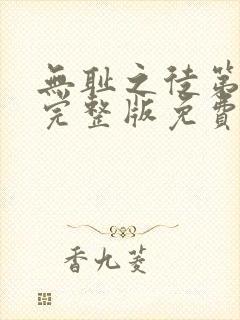 無耻之徒第
完整版免費
香九菱